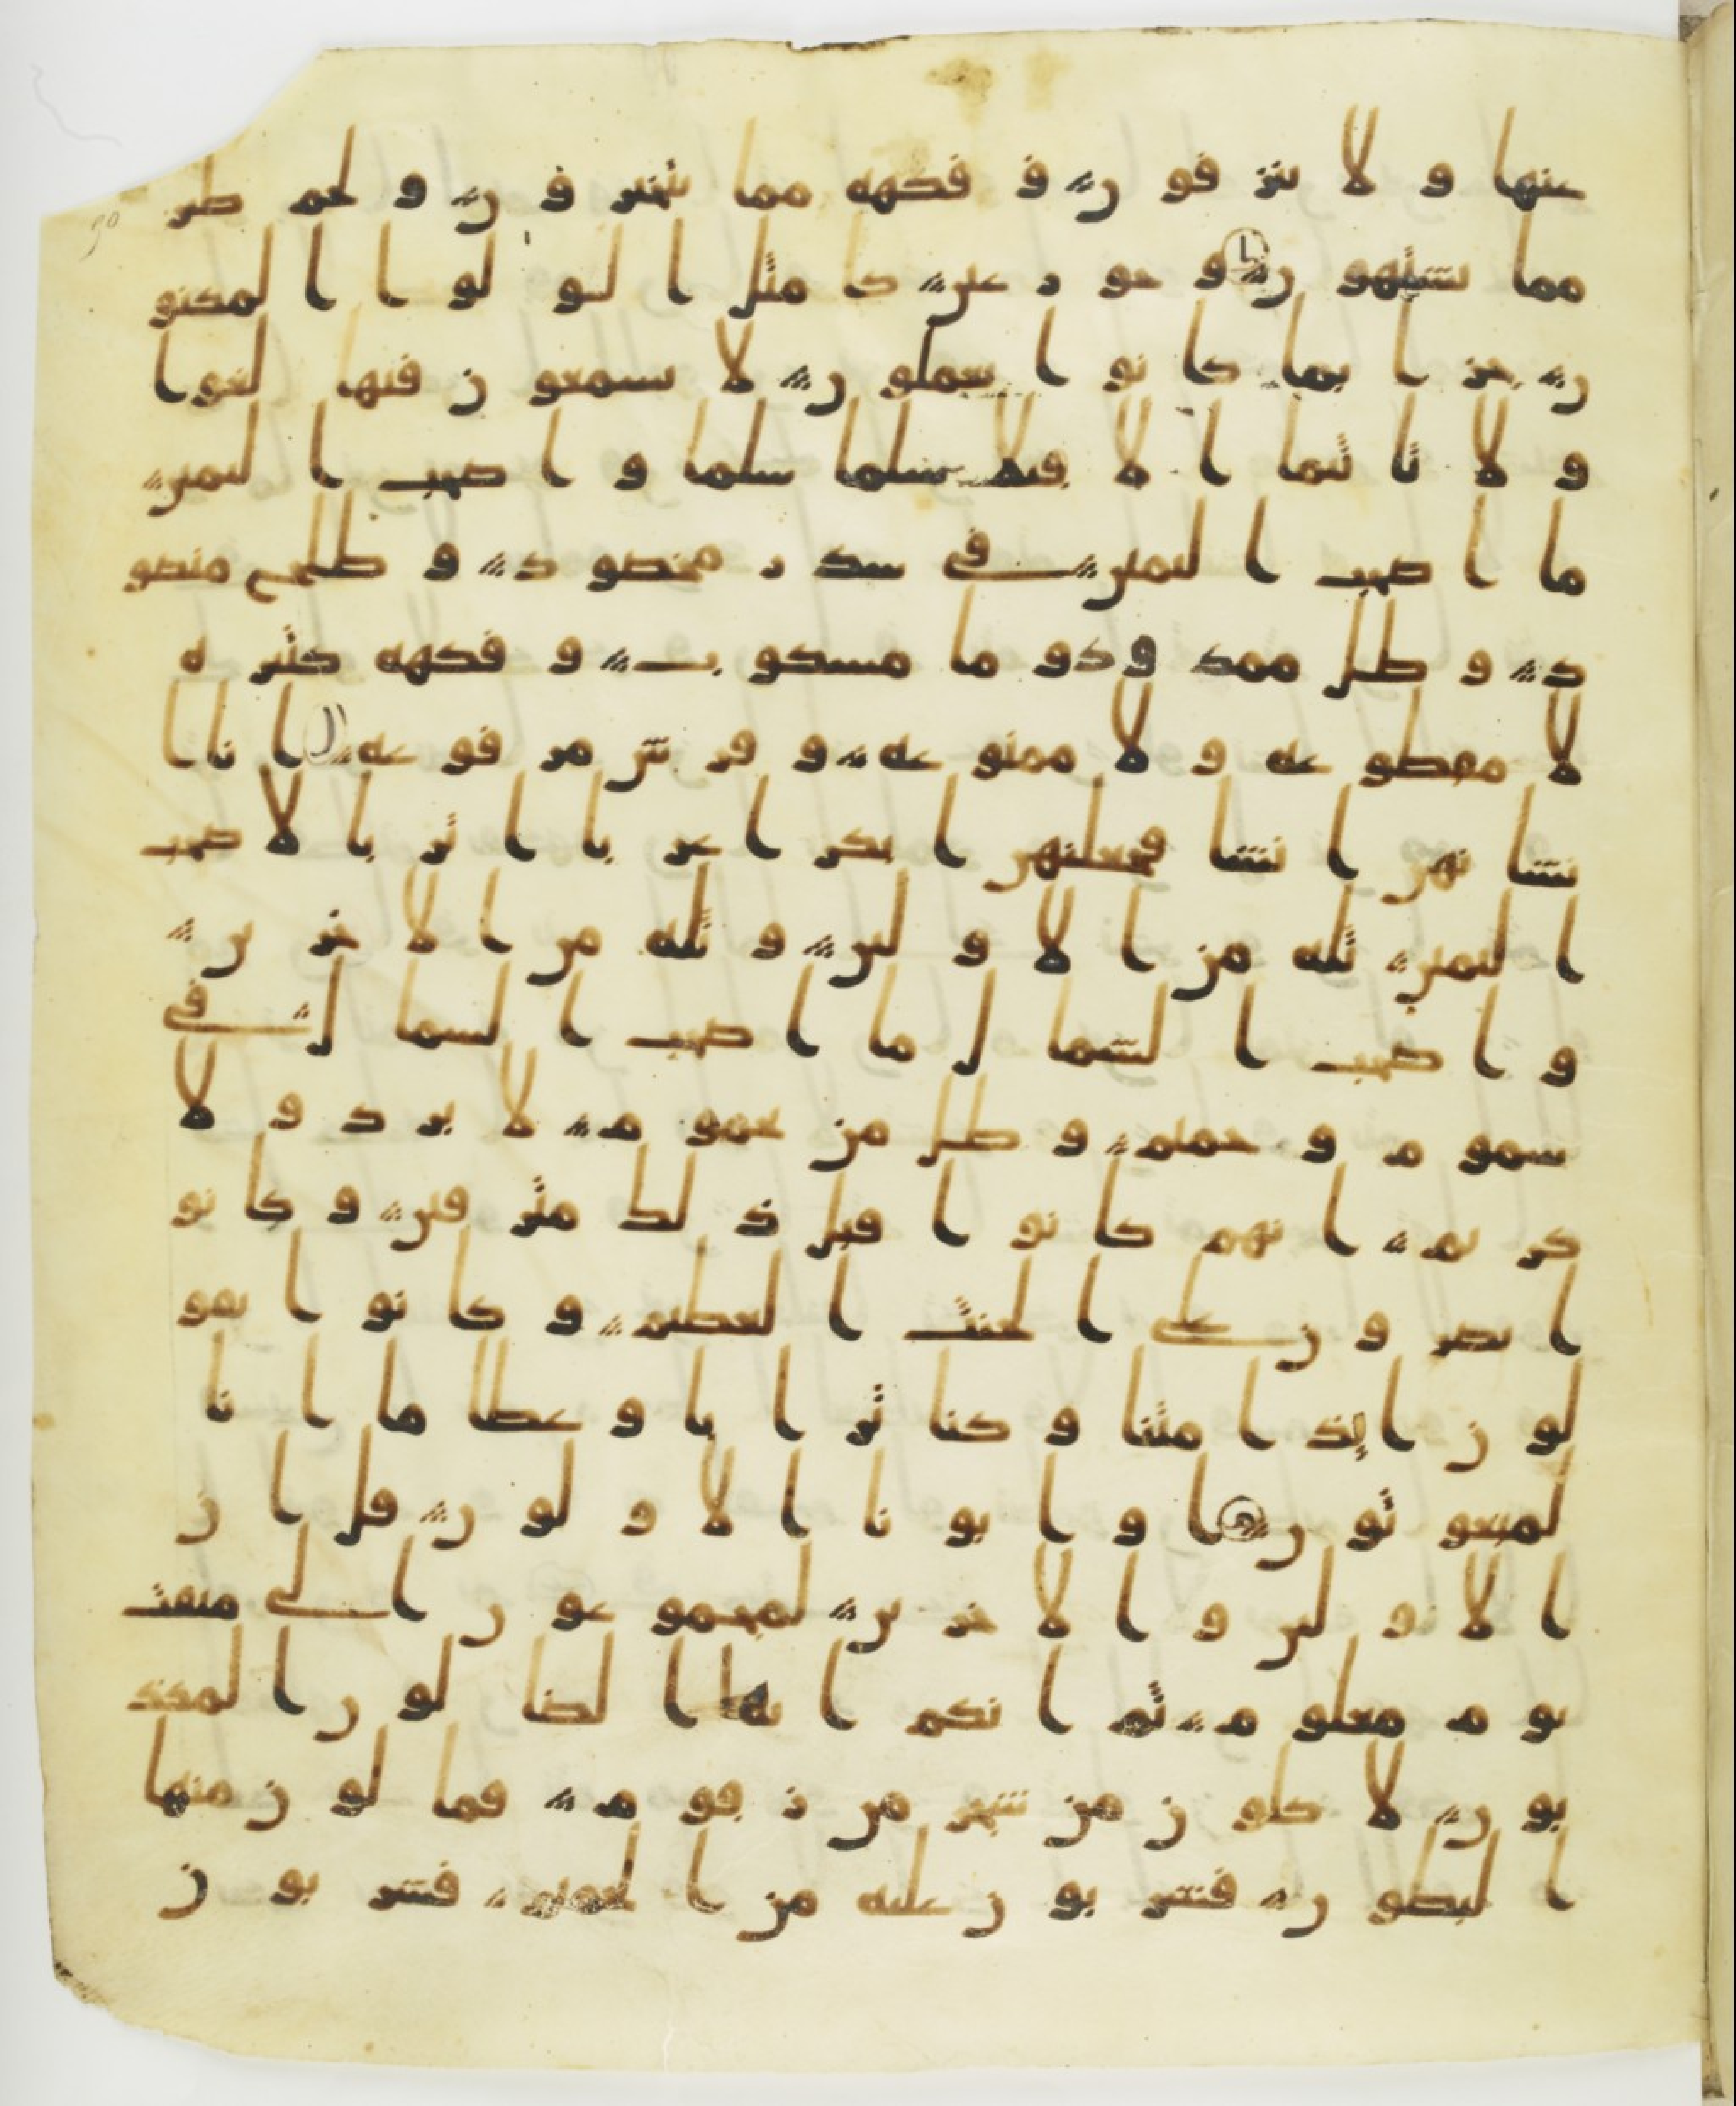 عنها ولا ينزفون وفكهه مما يتخيرون ولحم طير
مما يشتهون وحور عين كامثل اللولوا المكنو
ن جزا بما كانوا يعملون لا يسمعون فيها لغوا
ولا تاثيما الا قيلا سلما سلما واصحب اليمين
ما اصحب اليمين في سدر مخضود وطلح منضو
د وظل ممدود وما مسكوب وفكهه كثيره
لا مقطوعه ولا ممنوعه وفرش مرفوعه انا ا
نشانهن انشا فجعلنهن ابكرا عربا اترابا لاصحب
اليمين ثله من الاولين وثله من الاخرين
واصحب الشمال ما اصحب الشمال في
سموم وحميم وظل من يحموم لا برد ولا
كريم انهم كانوا قبل ذلك مترفين وكانو
ا يصرون على الحنث العظيم وكانوا يقو
لون ايذا متنا وكنا ترابا وعظاما انا
لمبعوثون او ابونا الاولون قل ان
الاولين والاخرين لمجموعون الى ميقت
يوم معلوم ثم انكم ايها الضالون المكذ
بون لاكلون من شجر من زقوم فمالون منها
البطون فشربون عليه من الحميم فشربون